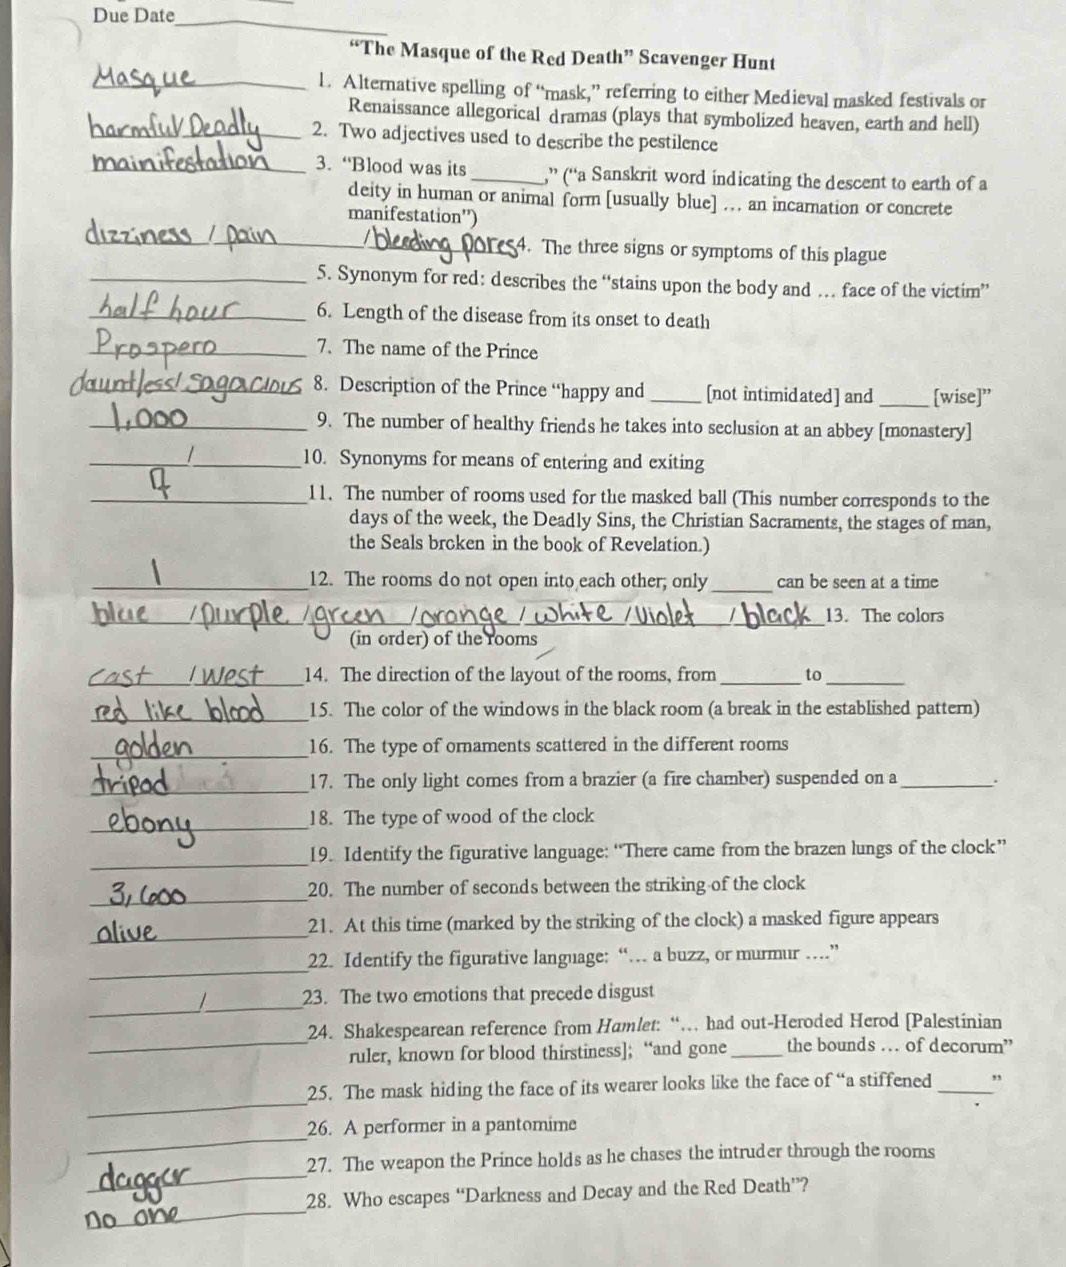 Due Date
“The Masque of the Red Death” Scavenger Hunt
Masque 1. Alternative spelling of “mask,” referring to either Medieval masked festivals or
Renaissance allegorical dramas (plays that symbolized heaven, earth and hell)
harmful Deadly 2. Two adjectives used to describe the pestilence
mainifestation 3. “Blood was its ______,” (“a Sanskrit word indicating the descent to earth of a
deity in human or animal form [usually blue] … an incarnation or concrete
manifestation”)
dizziness / pain / bleeding pores 4. The three signs or symptoms of this plague
5. Synonym for red: describes the “stains upon the body and … face of the victim”
half hour 6. Length of the disease from its onset to death
Prospero 7. The name of the Prince
dauntless/ sagacious 8. Description of the Prince “happy and _____ [not intimidated] and _____ [wise]”
1,000 9. The number of healthy friends he takes into seclusion at an abbey [monastery]
/ 10. Synonyms for means of entering and exiting
7 11. The number of rooms used for the masked ball (This number corresponds to the
days of the week, the Deadly Sins, the Christian Sacraments, the stages of man,
the Seals broken in the book of Revelation.)
1 12. The rooms do not open into each other; only ______ can be seen at a time
blue / purple / green / orange / white / violet / black 13. The colors
(in order) of the rooms
east / West 14. The direction of the layout of the rooms, from ________ to ________
red like blood 15. The color of the windows in the black room (a break in the established pattern)
golden 16. The type of ornaments scattered in the different rooms
tripod 17. The only light comes from a brazier (a fire chamber) suspended on a _________.
ebony 18. The type of wood of the clock
19. Identify the figurative language: “There came from the brazen lungs of the clock”
3,600 20. The number of seconds between the striking of the clock
alive 21. At this time (marked by the striking of the clock) a masked figure appears
22. Identify the figurative language: “… a buzz, or murmur ….”
/ 23. The two emotions that precede disgust
24. Shakespearean reference from Hamlet: “… had out-Heroded Herod [Palestinian
ruler, known for blood thirstiness]; “and gone _____ the bounds … of decorum”
25. The mask hiding the face of its wearer looks like the face of “a stiffened _____”
26. A performer in a pantomime
dagger 27. The weapon the Prince holds as he chases the intruder through the rooms
no one 28. Who escapes “Darkness and Decay and the Red Death”?